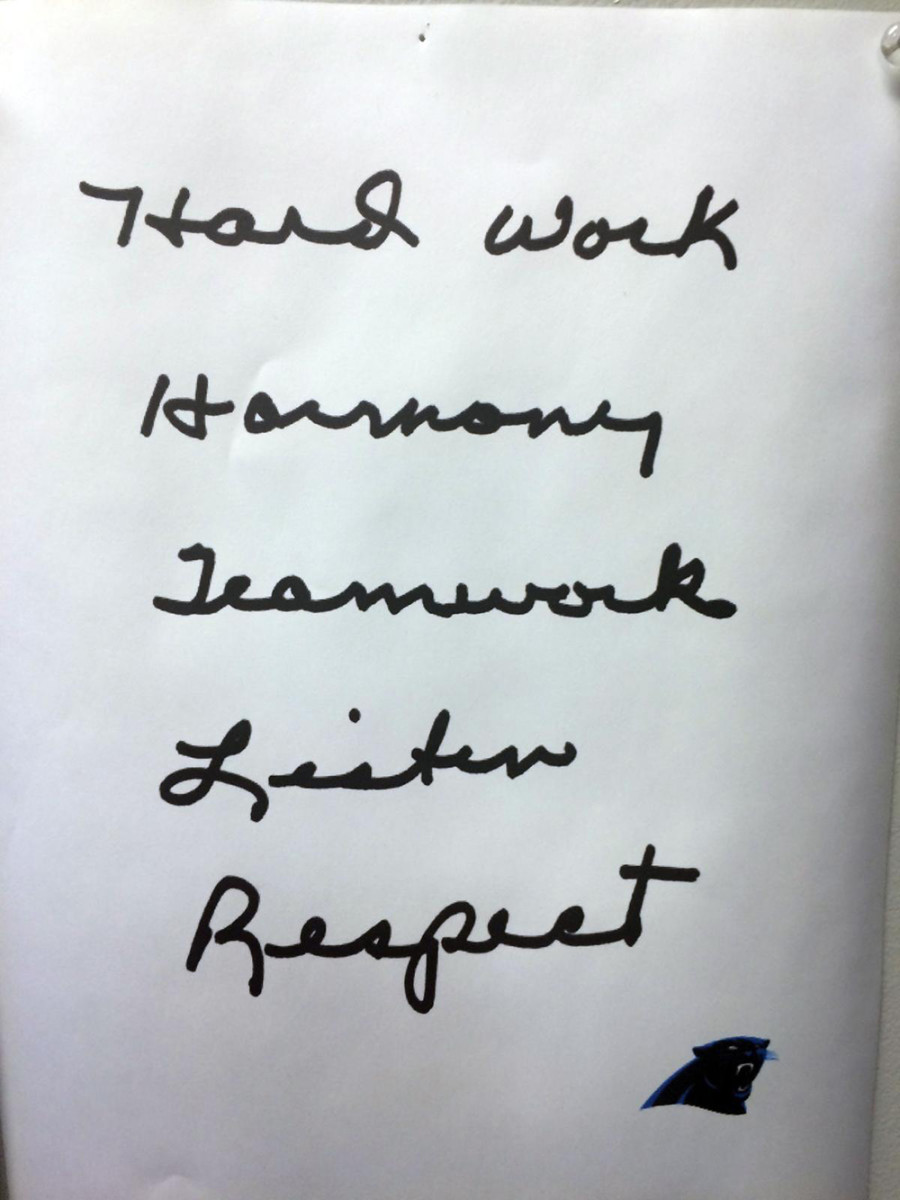 Hard Work
Harmony
Teamwork
Listen
Respect